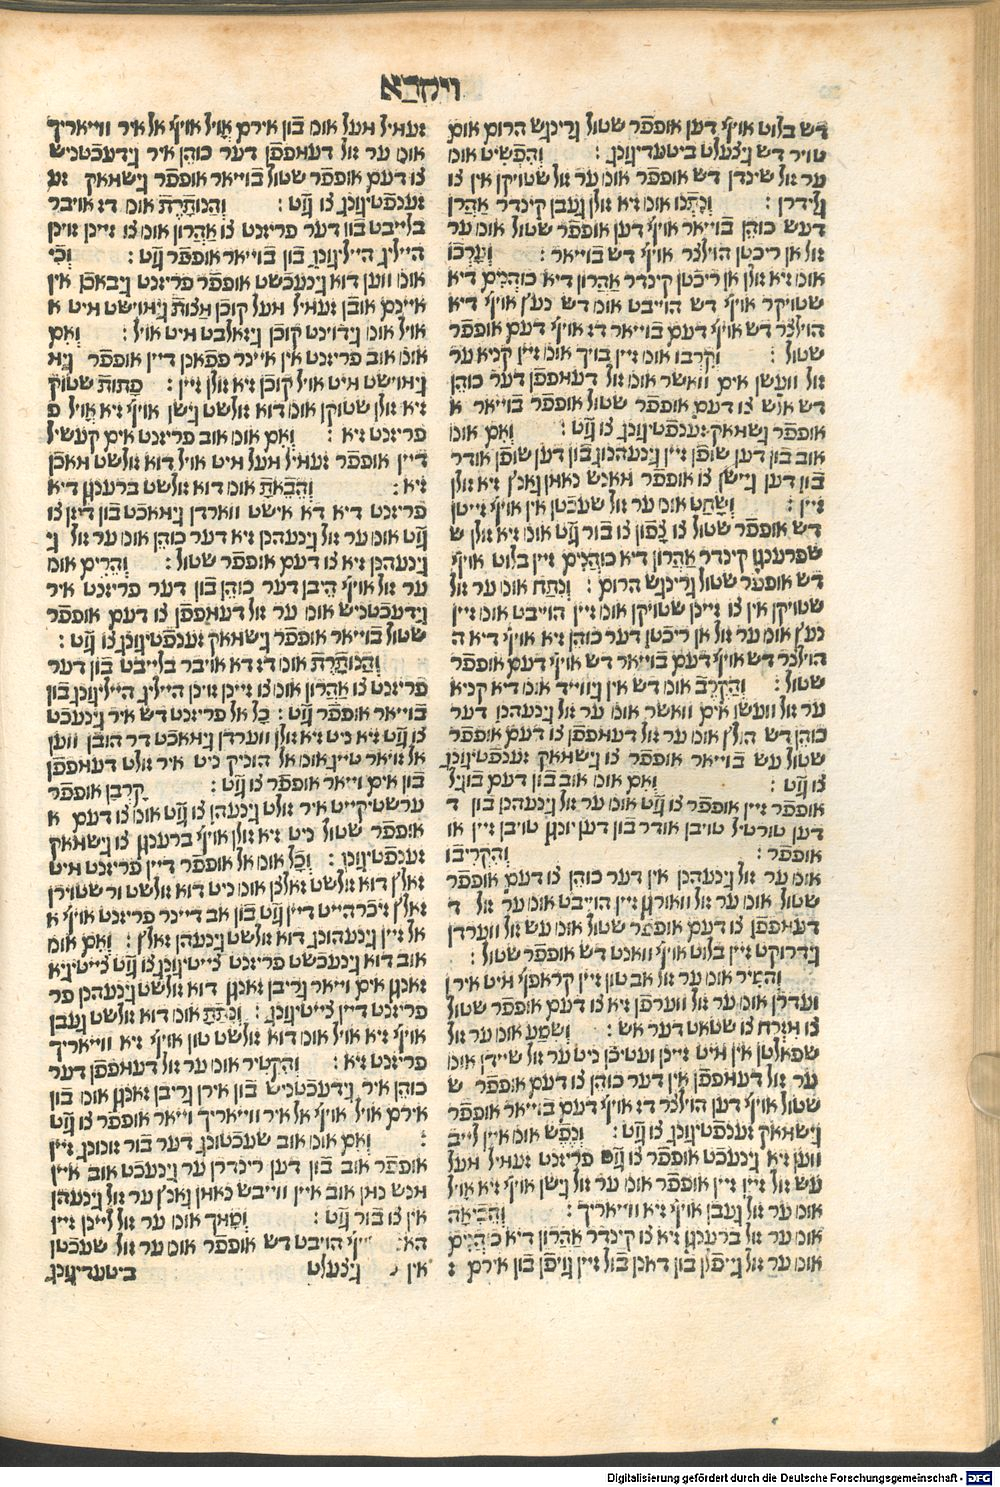 ויקרא
דש בלוט אויף דען אופפר שטול גרינגש הרום אום
טויר דש גיצעלט ביטעדיגונג : וְהִפְשִׁיט אומ
ער זול שינדן דש אופפר אומ ער זול שטויקן אין צו
גלידרן : וְנָתְנוּ אומ זיא זולן געבן קינדר אַהֲרֹן
דעש כוהן בֿוייאר אויף דען אופפר שטול אומ ער
זול אן ריכֿטן הוילצר אויף דש בֿוייאר : וְעָרְכוּ
אומ זיא זולן אן ריכֿטן קינדר אַהֲרֹון דיא כוהנים דיא
שטויקר אויף דש הוייבט אומ דש כעץ אויף דיא
הוילצר דש אויף דעם בֿוייאר דז אויף דעם אופפר
שטול : וְקִרְבּוֹ אומ זיין בויך אומ זיין קניא ער
זול וועשן אים וואשר אומ זול דעמפפן דער כוהן
דש אלש צו דעם אופפר שטול אופפר בֿוייאר א
אופפר גשמאק זענפֿטיגונג צו גָֿט : וְאִם אומ
אוב בֿון דען שופֿן זיין גינעהנונג בֿון דען שופֿן אודר
בֿון דען גיישן צו אופפר מאנש נאמן גאנץ זיא זולן
זיין : וְשָׁחַט אומ ער זול שעכֿטן אין אויף זייטן
דש אופפר שטול צו צָפוֹן צו בֿור גָֿט אומ זיא זולן ש
שפרענגן קינדר אַהֲרֹון דיא כוהנים זיין בלוט אויף
דש אופפר שטול גרינגש הרום : וְנִתַּח אומ ער זול
שטויקן אין צו זיינן שטויקן אומ זיין הוייבט אומ זיין
כעץ אומ ער זול אן ריכֿטן דער כוהן זיא אויף דיא ה
הוילצר דש אויף דעם בֿוייאר דש אויף דעם אופפר
שטול : וְהַקֶּרֶב אומ דש אין גיווייד אומ דיא קניא
ער זול וועשן אים וואשר אומ ער זול גינעהנן דער
כוהן דש הולץ אומ ער זול דעמפפן צו דעם אופפר
שטול עש בֿוייאר אופפר צו גישמאק זענפֿטיגונג
צו גָֿט : וְאִם אומ אוב בֿון דעם בֿוגיל
אופפר זיין אופפר צו גָֿט אומ ער זול גינעהנן בֿון ד
דען טורטיל טויבן אודר בֿון דען יונגן טויבן זיין או
אופפר : וְהִקְרִיבוֹ
אומ ער זול גינעהנן אין דער כוהן צו דעם אופפר
שטול אומ ער זול וואורגן זיין הוייבט אומ ער זול ד
דעמפפן צו דעם אופפר שטול אומ עש זול ווערדן
גידרוקט זיין בלוט אויף וואנט דש אופפר שטול :
וְהֵסִיר אומ ער זול אב טון זיין קראפף מיט אירן
וועדרן אומ ער זול ווערפֿן זיא צו דעם אופפר שטול
צו מִזְרָח צו שטאט דער אש : וְשִׁסַּע אומ ער זול
שפאלטן אין מיט זיינן ועטיכֿן ניט ער זול שיידן אומ
ער זול דעמפפן אין דער כוהן צו דעם אופפר ש
שטול אויף דען הוילצר דז אויף דעם בֿוייאר אופפר
גישמאק זענפֿטיגונג צו גָֿט : וְנֶפֶשׁ אומ איין לייב
ווען זיא גינעכֿט אופפר צו גָֿט פריזנט זעמיל מעל
עש זול זיין זיין אופפר אומ ער זול גישן אויף זיא אויל
אומ ער זול געבן אויף זיא ווייאריך : וְהֵבִיאָהּ
אומ ער זול ברענגן זיא צו קינדר אַהֲרֹון דיא כוהנים
אומ ער זול גייפֿלן בֿון דאנן בֿול זיין גויפֿן בֿון אירם :
זעמיל מעל אומ בֿון אירם אויל אויף אל איר ווייאריך
אומ ער זול דעמפפן דער כוהן איר גידעכֿטניש
צו דעם אופפר שטול בֿוייאר אופפר גישמאק זע
זענפֿטיגונג צו גָֿט : וְהַנּוֹתֶרֶת אומ דז אויבר
בלייבט בֿון דער פריזנט צו אַהֲרֹון אומ צו זיינן זוינן
היילג היילגונג בֿון בֿוייאר אופפר גָֿט : וְכִי
אומ ווען דוא גינעכֿשט אופפר פריזנט גיבאכֿן אין
איינם אובן זעמיל מעל קוכֿן מַצּוֹת גימוישט מיט א
אויל אומ גידוינט קוכֿן גיזאלבט מיט אויל : וְאִם
אומ אוב פריזנט אין איינר פפאנן דיין אופפר גימ
גימוישט מיט אויל קוכֿן זיא זולן זיין : פָּתוֹת שטויק
זיא זולן שטויקן אומ דוא זולשט גישן אויף זיא אויל פ
פריזנט זיא : וְאִם אומ אוב פריזנט אים קעשיל
דיין אופפר זעמיל מעל מיט אויל דוא זולשט מאכֿן
זיא : וְהֵבֵאתָ אומ דוא זולשט ברענגן דיא
פריזנט דיא דא אישט ווארדן גימאכֿט בֿון דיזן צו
גָֿט אומ ער זול גינעהנן זיא דער כוהן אומ ער זול גי
גינעהנן זיא צו דעם אופפר שטול : וְהֵרִים אומ
ער זול אויף היבן דער כוהן בֿון דער פריזנט איר
גידעכֿטניש אומ ער זול דעמפפן צו דעם אופפר
שטול בֿוייאר אופפר גישמאק זענפֿטיגונג צו גָֿט :
וְהַנּוֹתֶרֶת אומ דז דא אויבר בלייבט בֿון דער
פריזנט צו אַהֲרֹון אומ צו זיינן זוינן היילג היילגונג בֿון
בֿוייאר אופפר גָֿט : כָּל אל פריזנט דש איר גינעכֿט
צו גָֿט זיא ניט זיא זולן ווערדן גימאכֿט דר הובן ווען
אל זויאר טייג אומ אל הוניק ניט איר זולט דעמפפן
בֿון אים וייאר אופפר צו גָֿט : קָרְבַּן אופפר
ערשטיקייט איר זולט גינעהן צו גָֿט אומ צו דעם א
אופפר שטול ניט זיא זולן אויף ברענגן צו גישמאק
זענפֿטיגונג : וְכָל אומ אל אופפר דיין פריזנט מיט
זאלץ דוא זולשט זאלצן אומ ניט דוא זולשט ור שטוירן
זאלץ זיכֿרהייט דיין גָֿט בֿון אב דיינר פריזנט אויף א
אל זיין גינעהונג דוא זולשט גינעהן זאלץ : וְאִם אומ
אוב דוא גינעכֿשט פריזנט צייטיגונג צו גָֿט צייטיגיא
זאנגן אים וייאר גריבן זאנגן דוא זולשט גינעהנן פר
פריזנט דיין צייטיגונג : וְנָתַתָּ אומ דוא זולשט געבן
אויף זיא אויל אומ דוא זולשט טון אויף זיא ווייאריך
פריזנט זיא : וְהִקְטִיר אומ ער זול דעמפפן דער
כוהן איר גידעכֿטניש בֿון אירן גריבן זאנגן אומ בֿון
אירם אויל אויף אל איר ווייאריך וייאר אופפר צו גָֿט
: וְאִם אומ אוב שעכֿטונג דער בֿור זונונג זיין
אופפר אוב בֿון דען רינדרן ער גינעכֿט אוב איין
מנש נמן אוב איין ווייבש נאמן גאנץ ער זול גינעהן
אין צו בֿור גָֿט : וְסָמַךְ אומ ער זול ליינן זיין
האנט אויף הויבט דש אופפר אומ ער זול שעכֿטן
אין גיצעלט ביטעדיגונג
Digitalisierung gefördert durch die Deutsche Forschungsgemeinschaft - DFG